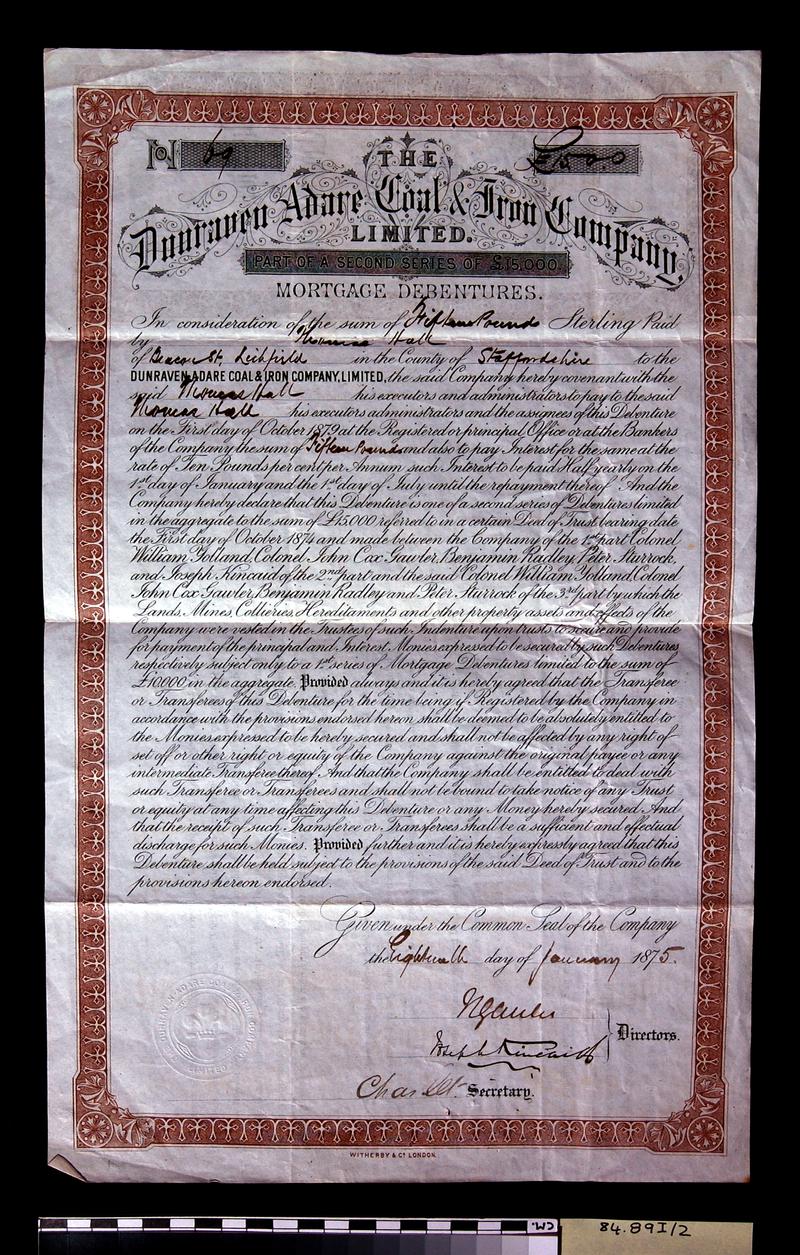 No. 69 £15.0.0
THE
Dunraven Adare Coal & Iron Company
LIMITED.
PART OF A SECOND SERIES OF £15,000.
MORTGAGE DEBENTURES.
In consideration of the sum of Fifteen Pounds Sterling Paid
by Thomas Hall
of Beacon St, Lichfield in the County of Staffordshire to the
DUNRAVEN ADARE COAL & IRON COMPANY, LIMITED, the said Company hereby covenant with the
said Thomas Hall his executors and administrators to pay to the said
Thomas Hall his executors administrators and the assignees of this Debenture
on the First day of October 1879 at the Registered or principal Office or at the Bankers
of the Company the sum of Fifteen Pounds and also to pay Interest for the same at the
rate of Ten Pounds per cent per Annum such Interest to be paid Half yearly on the
1st day of January and the 1st day of July until the repayment thereof And the
Company hereby declare that this Debenture is one of a second series of Debentures limited
in the aggregate to the sum of £15,000 referred to in a certain Deed of Trust bearing date
the First day of October 1874 and made between the Company of the 1st part Colonel
William Yolland, Colonel John Cox Gawler, Benjamin Radley, Peter Sturrock,
and Joseph Kincaid of the 2nd part and the said Colonel William Yolland, Colonel
John Cox Gawler, Benjamin Radley and Peter Sturrock of the 3rd part by which the
Lands, Mines, Collieries, Hereditaments and other property assets and effects of the
Company were vested in the Trustees of such Indenture upon trusts to secure and provide
for payment of the principal and Interest Monies expressed to be secured by such Debentures
respectively subject only to a 1st series of Mortgage Debentures limited to the sum of
£10,000 in the aggregate. Provided always and it is hereby agreed that the Transferee
or Transferees of this Debenture for the time being if Registered by the Company in
accordance with the provisions endorsed hereon shall be deemed to be absolutely entitled to
the Monies expressed to be hereby secured and shall not be affected by any right of
set off or other right or equity of the Company against the original payee or any
intermediate Transferee thereof And that the Company shall be entitled to deal with
such Transferee or Transferees and shall not be bound to take notice of any Trust
or equity at any time affecting this Debenture or any Money hereby secured. And
that the receipt of such Transferee or Transferees shall be a sufficient and effectual
discharge for such Monies. Provided further and it is hereby expressly agreed that this
Debenture shall be held subject to the provisions of the said Deed of Trust and to the
provisions hereon endorsed.
Given under the Common Seal of the Company
the Eighteenth day of January 1875.
Joseph Kincaid
Directors.
Chas Secretary.
DUNRAVEN ADARE COAL & IRON COMPANY
LIMITED
WITHERBY & Co. LONDON.
84.89I/2